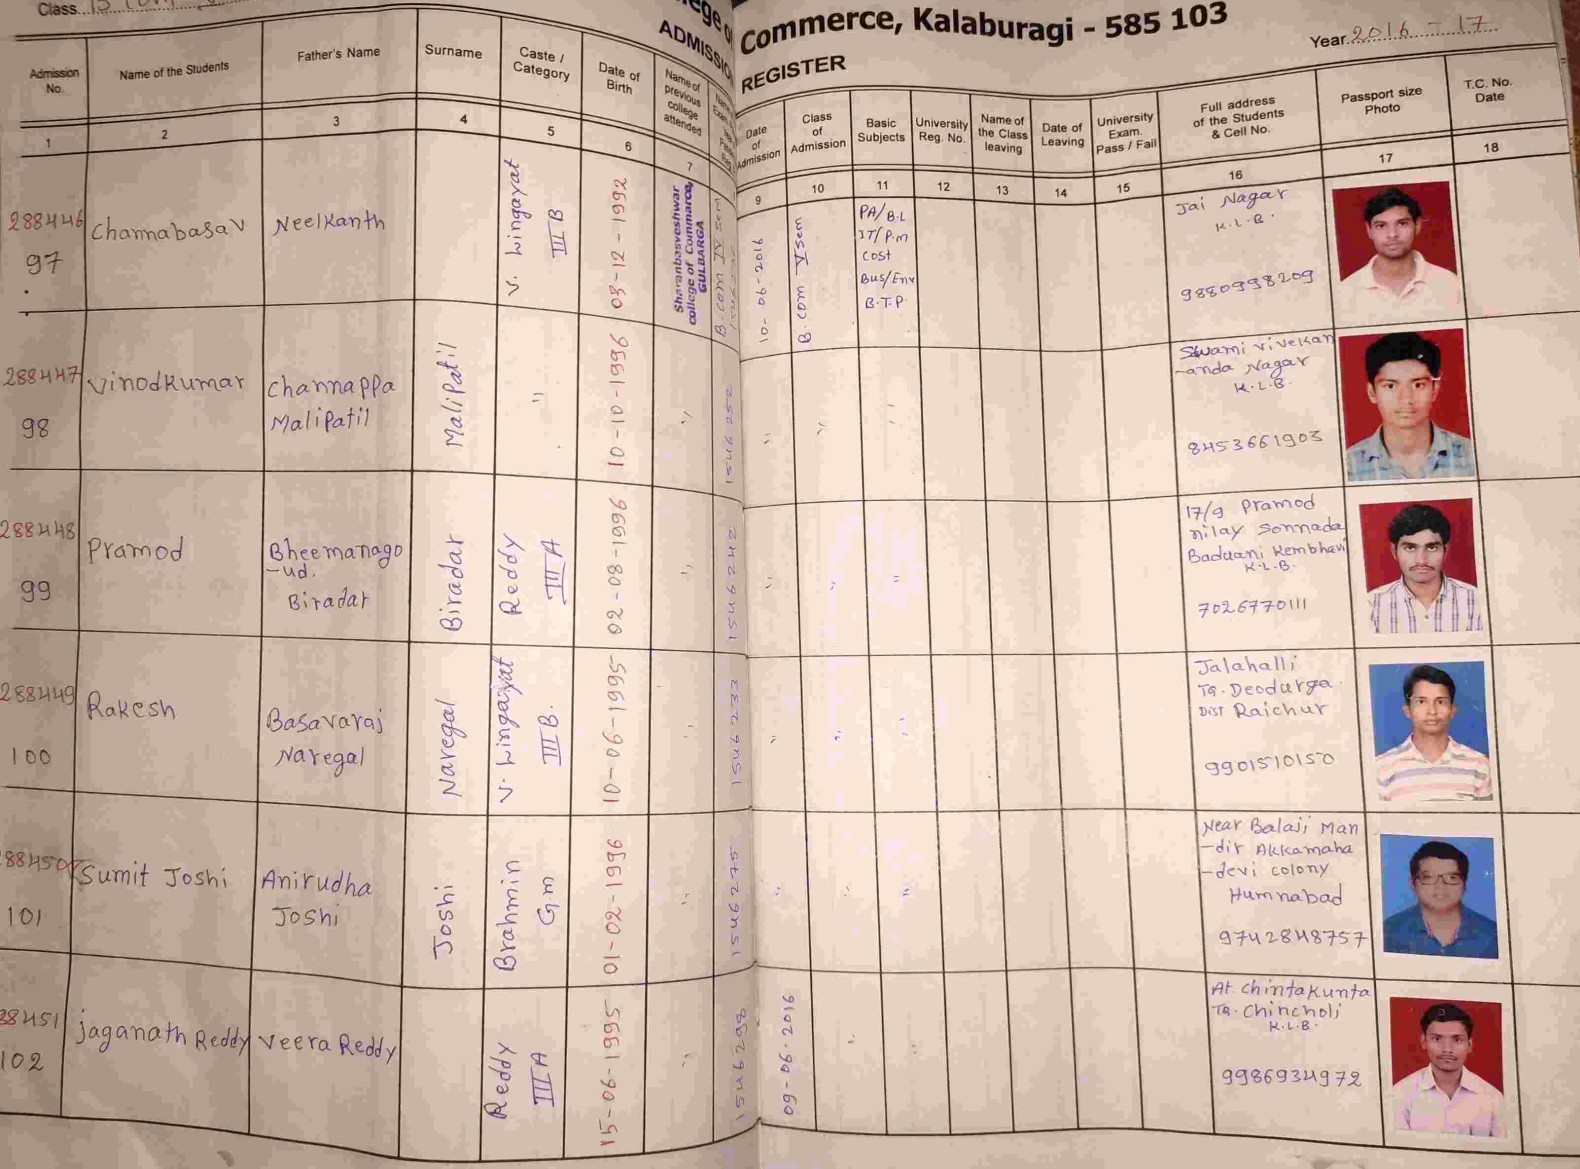 Class
ADMISSION REGISTER
Commerce, Kalaburagi - 585 103
Year 2016 - 17
Admission No.
Name of the Students
Father's Name
Surname
Caste / Category
Date of Birth
Name of previous college attended
Date of Admission
Class of Admission
Basic Subjects
University Reg. No.
Name of the Class leaving
Date of Leaving
University Exam. Pass / Fail
Full address of the Students & Cell No.
Passport size Photo
T.C. No. Date
1 2 3 4 5 6 7 9 10 11 12 13 14 15 16 17 18
288446
97
Channabasav
Neelkanth
V. Lingayat
III B
03-12-1992
Sharanbasveshwar
college of Commarce,
GULBARGA
B.com IV sem
10-06-2016
B.com V sem
PA/B.L
IT/P.m
cost
Bus/Env
B.T.P.
Jai Nagar
K.L.B.
9880998209
288447
98
Vinodkumar
Channappa
Malipatil
Malipatil
"
10-10-1996
"
1546252
"
"
"
Swami vivekan
-anda Nagar
K.L.B.
8453661903
288448
99
Pramod
Bheemanago
-ud.
Biradar
Biradar
Reddy
III A
02-08-1996
"
1546242
"
"
"
17/9 Pramod
nilay Sonnada
Baduani Kembhavi
K.L.B.
7026770111
288449
100
Rakesh
Basavaraj
Naregal
Naregal
V. Lingayat
III B.
10-06-1995
"
1546233
"
"
"
Jalahalli
Tq. Deodurga
Dist Raichur
9901510150
88450
101
Sumit Joshi
Anirudha
Joshi
Joshi
Brahmin
G.m
01-02-1996
"
1546275
"
"
"
Near Balaji Man
-dir Akkamaha
-devi colony
Humnabad
9742848757
88451
102
jaganath Reddy
Veera Reddy
Reddy
III A
15-06-1995
"
1546298
09-06-2016
"
"
At. Chintakunta
Tq. Chincholi
K.L.B.
9986934972